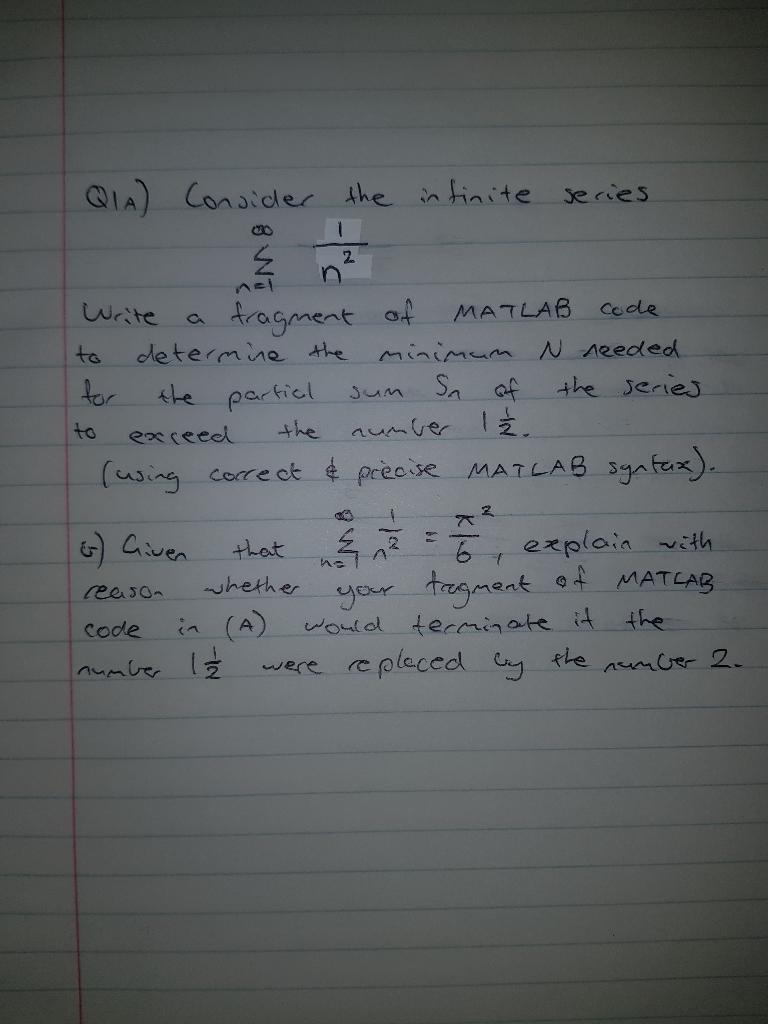 Q1A) Consider the infinite series
∞ Σ n=1 1/n²
Write a fragment of MATLAB code
to determine the minimum N needed
for the partial sum Sn of the series
to exceed the number 1 1/2.
(using correct & precise MATLAB syntax).
b) Given that ∞ Σ n=1 1/n² = π²/6, explain with
reason whether your fragment of MATLAB
code in (A) would terminate if the
number 1 1/2 were replaced by the number 2.